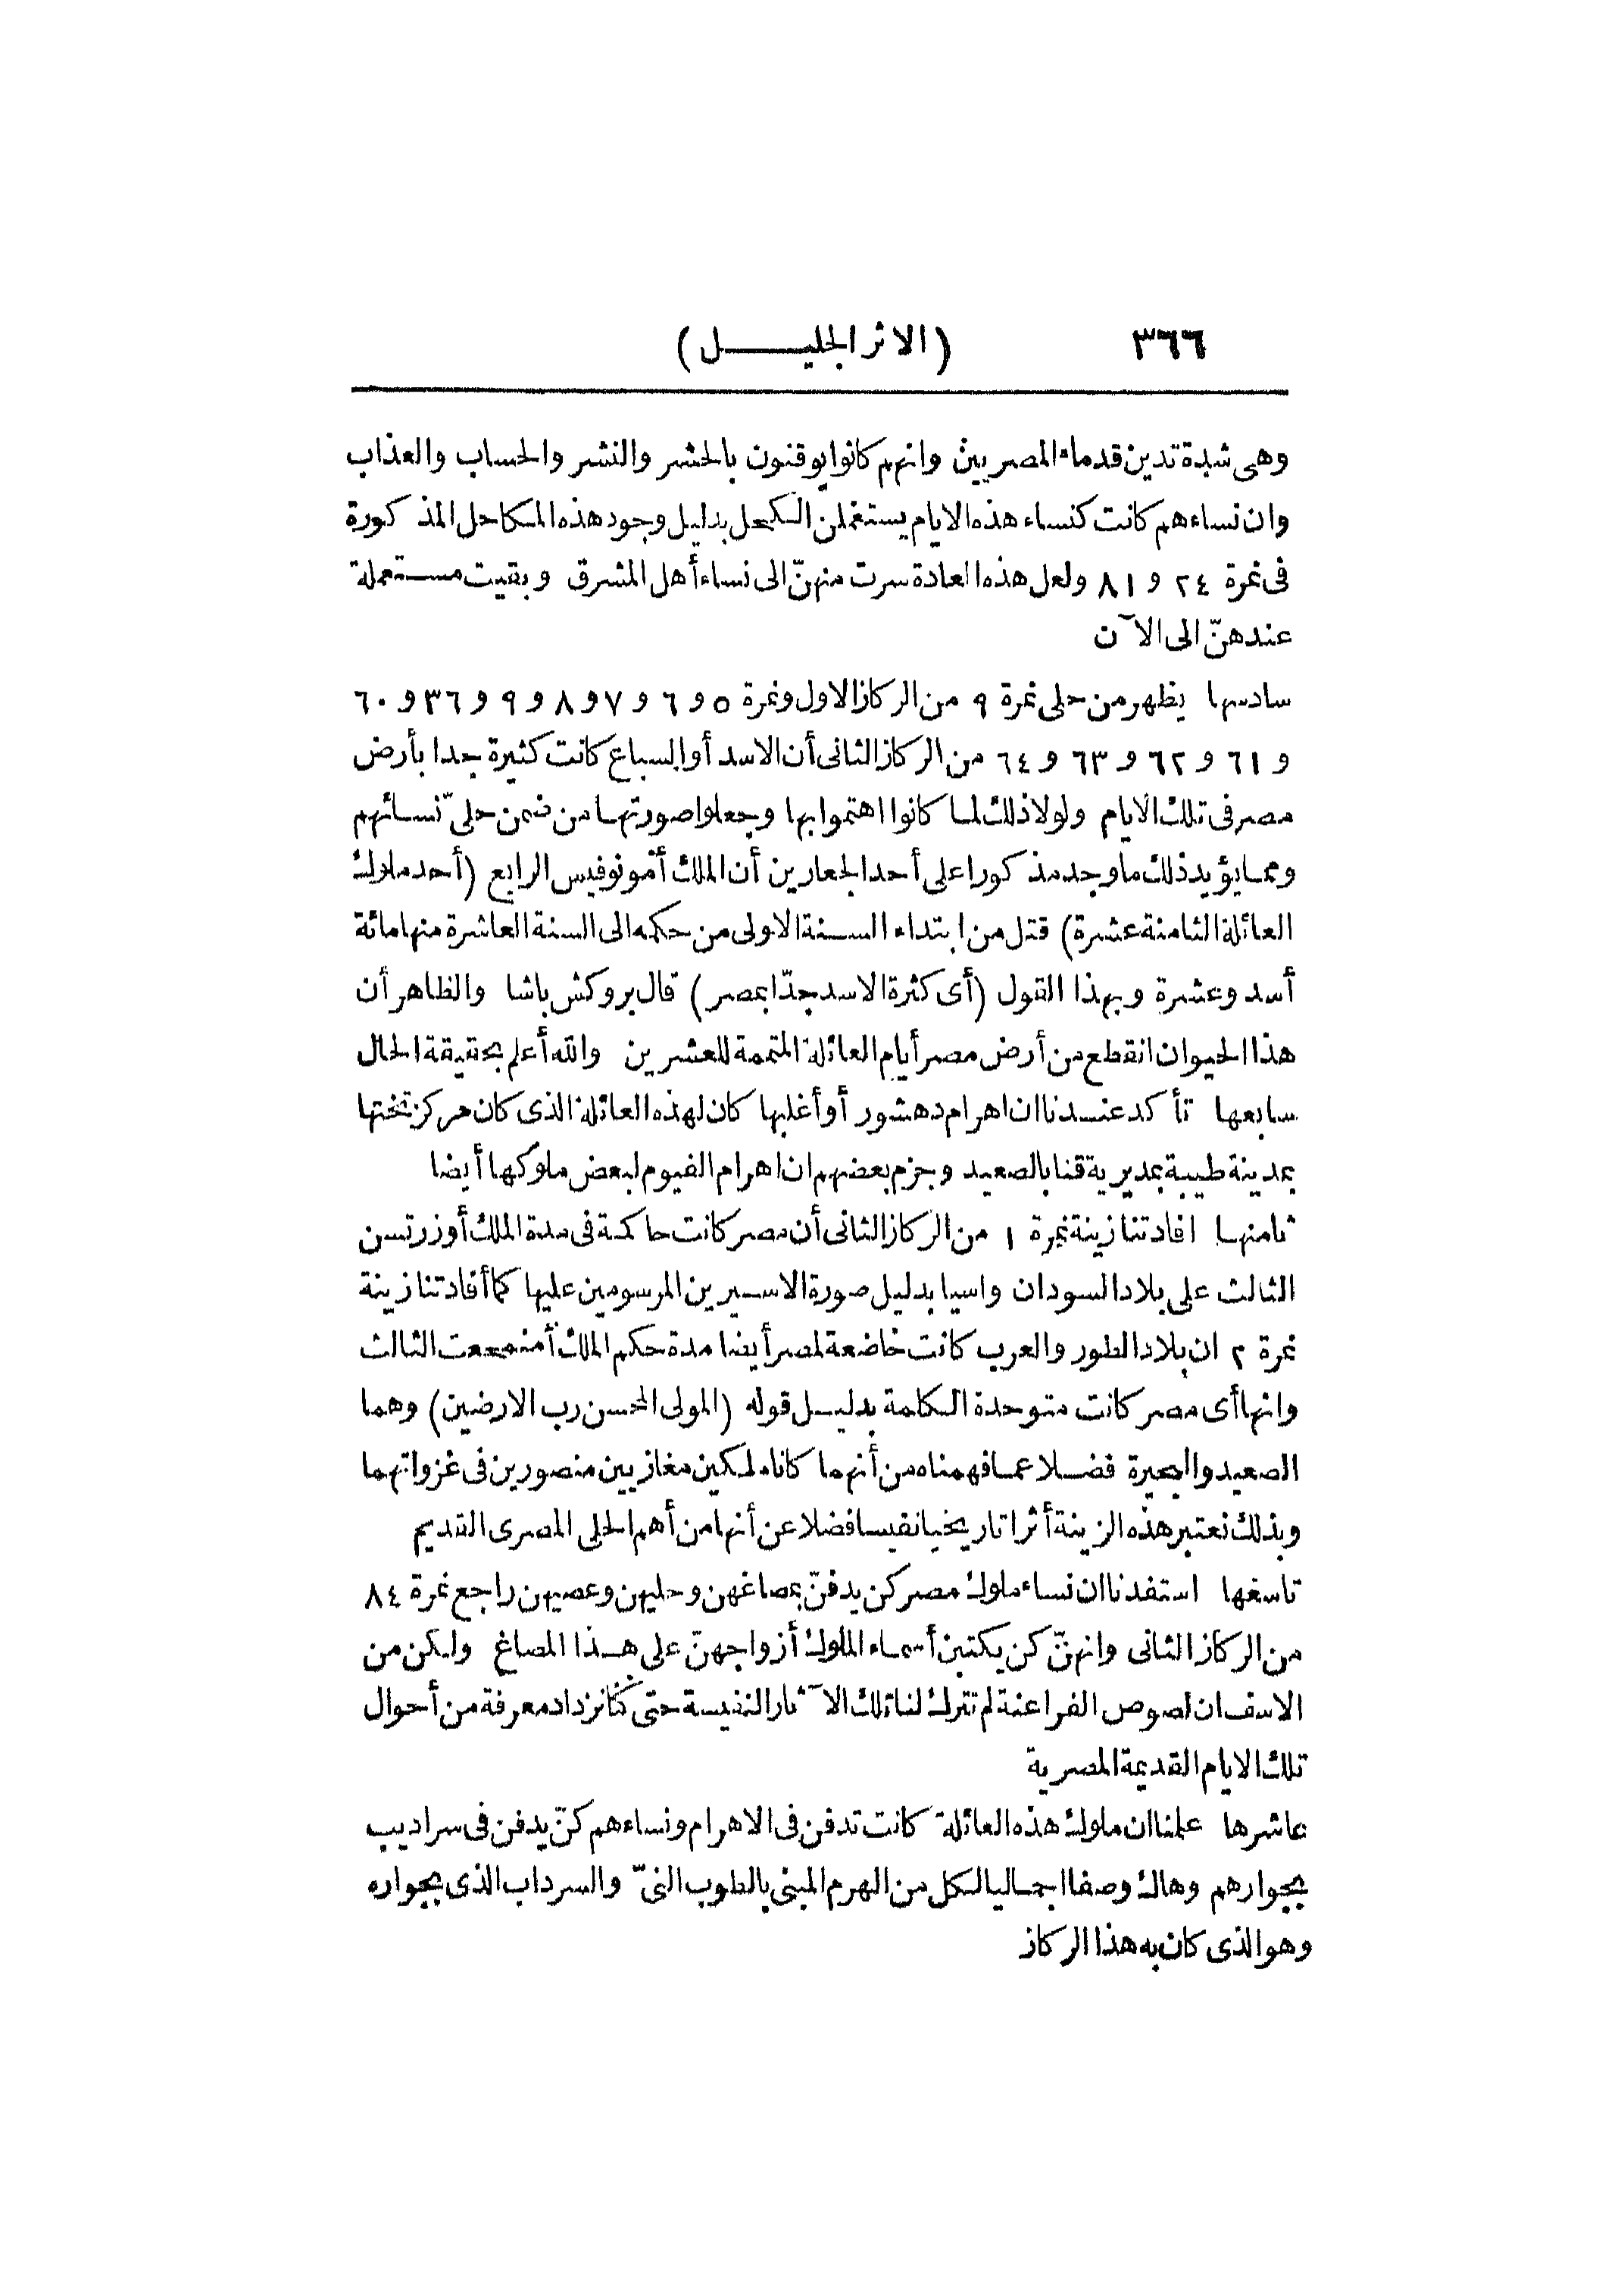 ٣٦٦ (الاثر الجليـــــل)
وهى شدة تدين قدماء المصريين وانهم كانوا يوقنون بالحشر والنشر والحساب والعذاب
وان نساءهم كانت كنساء هذه الايام يستعملن الكحل بدليل وجود هذه المكاحل المذكورة
فى نمرة ٢٤ و ٨١ ولعل هذه العادة سرت منهنّ الى نساء أهل المشرق وبقيت مستعملة
عندهنّ الى الآن
سادسها يظهر من حلى نمرة ٩ من الركاز الاول ونمرة ٥ و ٦ و ٧ و ٨ و ٩ و ٣٦ و ٦٠
و ٦١ و ٦٢ و ٦٣ و ٦٤ من الركاز الثانى أن الاسد أو السباع كانت كثيرة جدا بأرض
مصر فى تلك الايام ولولا ذلك لما كانوا اهتموا بها وجعلوا صورتها من ضمن حلىّ نسائهم
ومما يؤيد ذلك ما وجد مذكورا على أحد الجعارين أن الملك أمونوفيس الرابع (أحد ملوك
العائلة الثامنة عشرة) قتل من ابتداء السنة الاولى من حكمه الى السنة العاشرة منها مائة
أسد وعشرة وبهذا القول (أى كثرة الاسد جدّا بمصر) قال بروكش باشا والظاهر أن
هذا الحيوان انقطع من أرض مصر أيام العائلة المتممة للعشرين والله أعلم بحقيقة الحال
سابعها تأكد عندنا ان اهرام دهشور أو أغلبها كان لهذه العائلة الذى كان مركز تختها
بمدينة طيبة بمديرية قنا بالصعيد وجزم بعضهم ان اهرام الفيوم لبعض ملوكها أيضا
ثامنها افادتنا زينة نمرة ١ من الركاز الثانى أن مصر كانت حاكمة فى مدة الملك أوزرتسن
الثالث على بلاد السودان واسيا بدليل صورة الاسيرين المرسومين عليها كما أفادتنا زينة
نمرة ٢ ان بلاد الطور والعرب كانت خاضعة لمصر أيضا مدة حكم الملك أمنمحعت الثالث
وانها أى مصر كانت متوحدة الكلمة بدليل قوله (المولى المحسن رب الارضين) وهما
الصعيد والبحيرة فضلا عما فهمناه من أنهما كانا ملكين مغازيين منصورين فى غزواتهما
وبذلك نعتبر هذه الزينة أثرا تاريخيا نفيسا فضلا عن أنها من أهم الحلى المصرى القديم
تاسعها استفدنا ان نساء ملوك مصر كن يدفنّ بمصاغهن وحليهن وعصيهن راجع نمرة ٨٤
من الركاز الثانى وانهنّ كن يكتبن أسماء الملوك أزواجهنّ على هذا المصاغ ولكن من
الاسف ان لصوص الفراعنة لم تترك لنا تلك الآثار النفيسة حتى كنا نزداد معرفة من أحوال
تلك الايام القديمة المصرية
عاشرها علمنا ان ملوك هذه العائلة كانت تدفن فى الاهرام ونساءهم كنّ يدفن فى سراديب
بجوارهم وهاك وصفا اجماليا لكل من الهرم المبنى بالطوب النىّ والسرداب الذى بجواره
وهو الذى كان به هذا الركاز